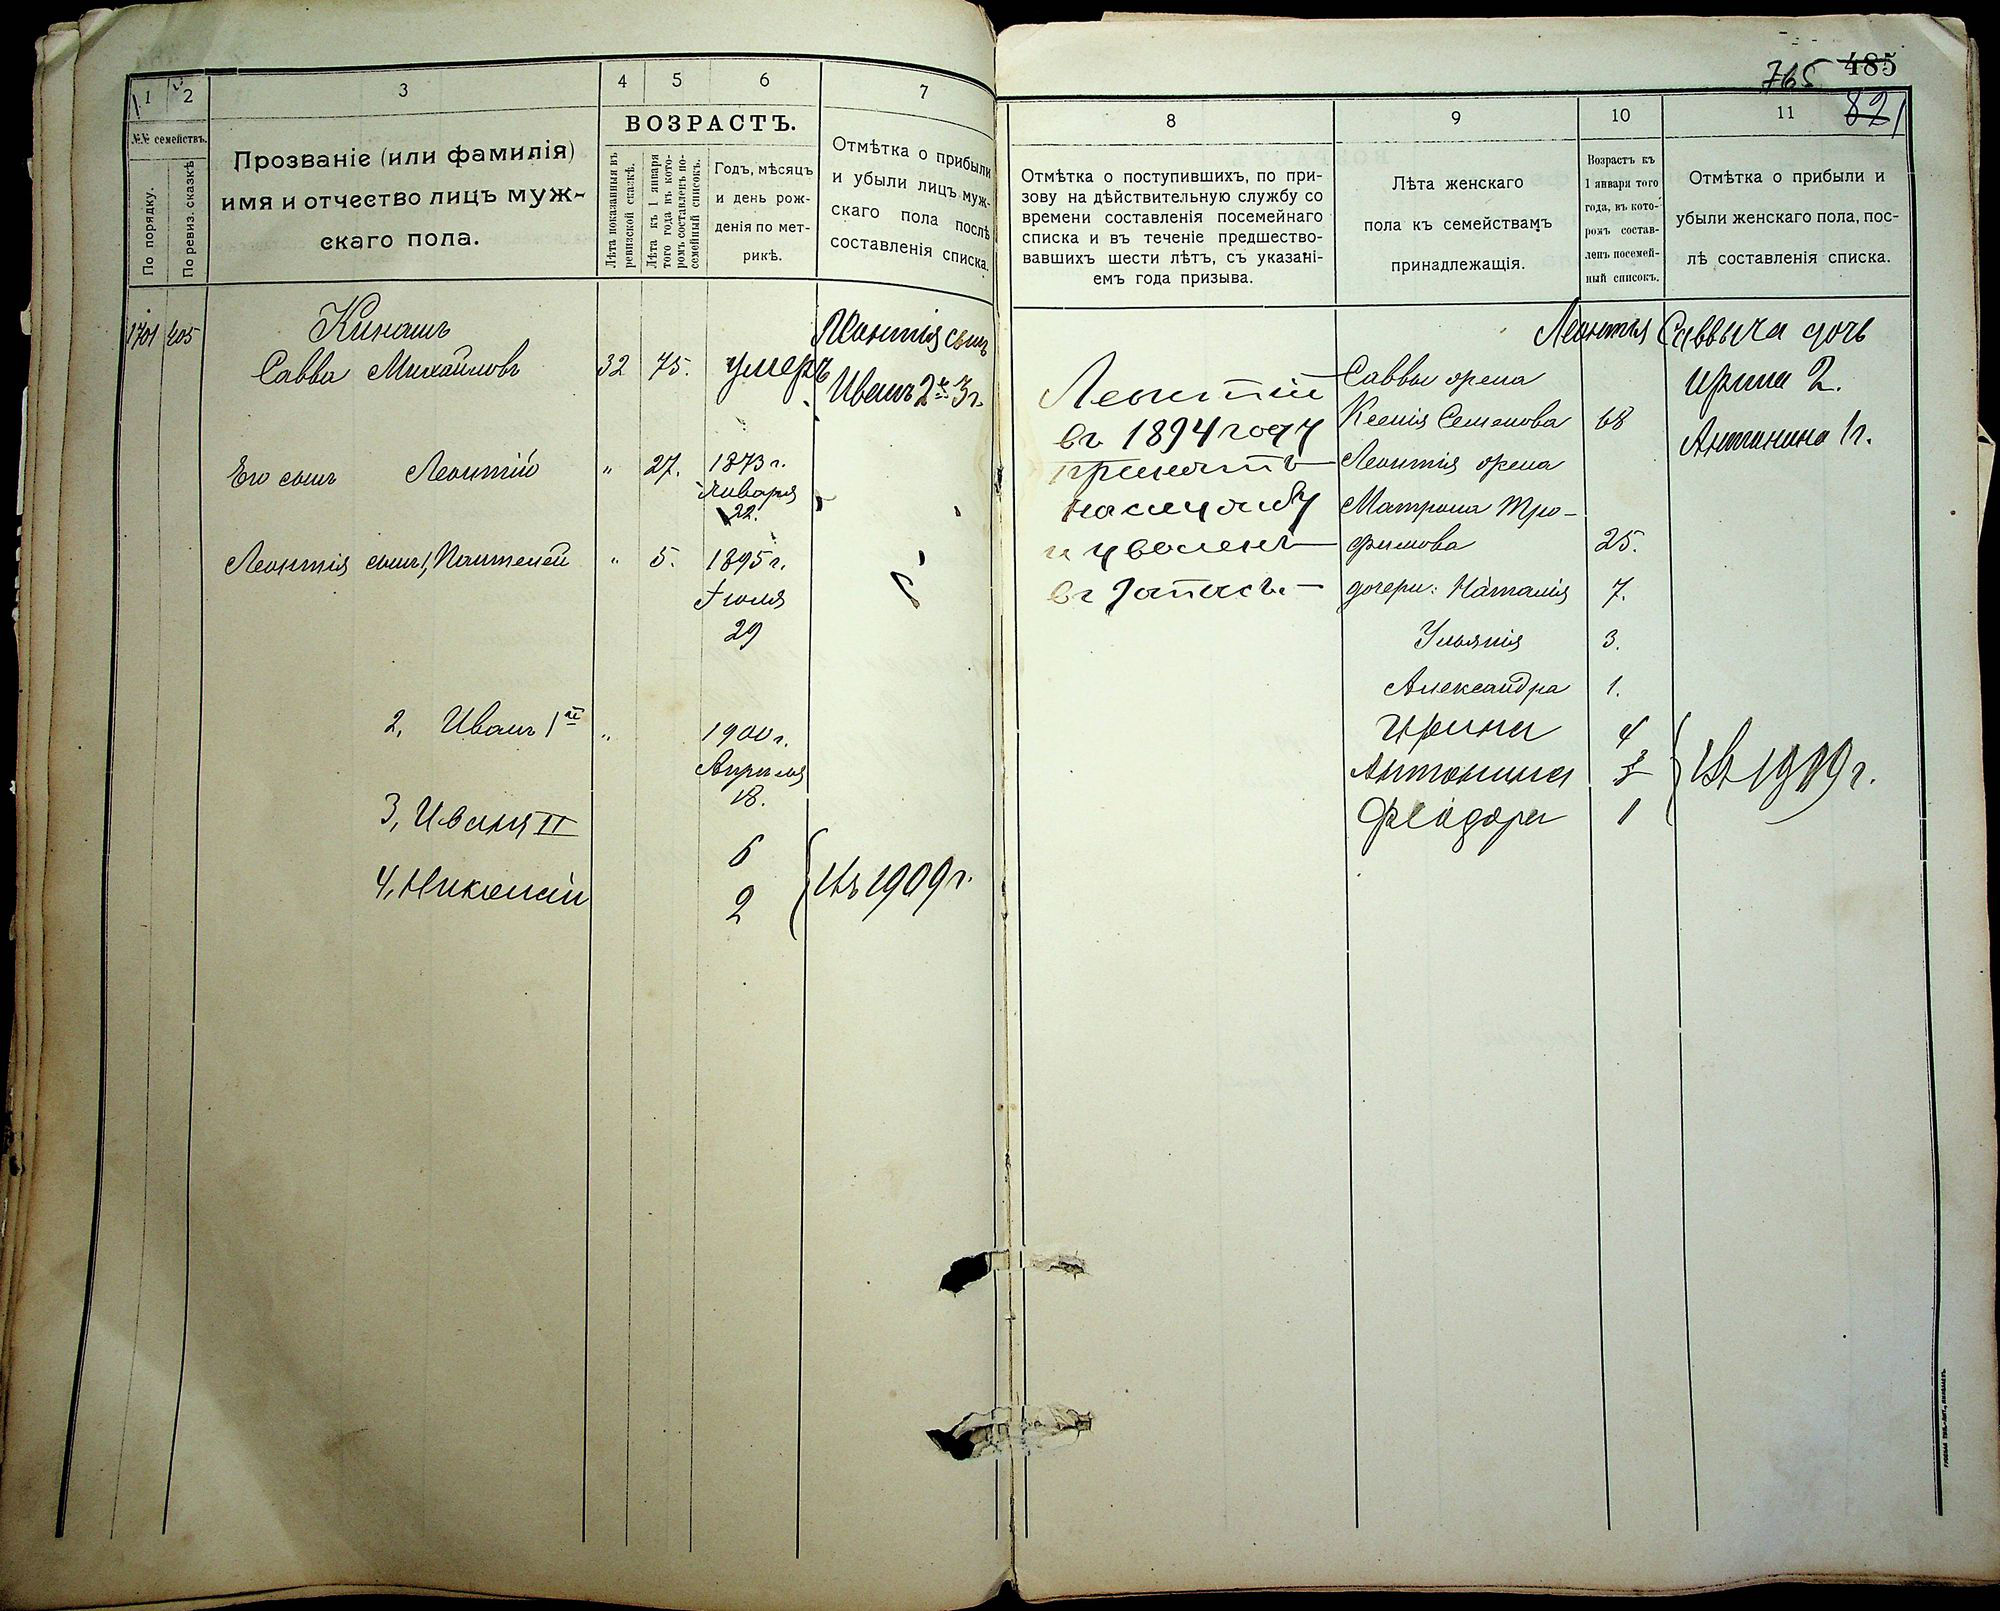 1
2
3
4
5
6
7
№№ семействъ.
По порядку.
По ревиз. сказкѣ
Прозваніе (или фамилія)
имя и отчество лицъ муж-
скаго пола.
ВОЗРАСТЪ.
Лѣта показанныя въ
ревизской сказкѣ.
Лѣта къ 1 января
того года въ кото-
ромъ составленъ по-
семейный списокъ.
Годъ, мѣсяцъ
и день рож-
денія по мет-
рикѣ.
Отмѣтка о прибыли
и убыли лицъ муж-
скаго пола послѣ
составленія списка.
1701 405
Кинашъ
Савва Михайловъ 32 75. умеръ
Леонтія сынъ
Иванъ 2й 3 г.
Его сынъ Леонтій " 27. 1873 г.
Января
22.
Леонтія сынъ 1, Пантелей " 5. 1895 г.
Іюля
29
2, Иванъ 1й " 1900 г.
Апрѣля
18.
3, Иванъ II 6
4, Николай 2
въ 1909 г.
765 485
821
8
9
10
11
Отмѣтка о поступившихъ, по при-
зову на дѣйствительную службу со
времени составленія посемейнаго
списка и въ теченіе предшество-
вавшихъ шести лѣтъ, съ указані-
емъ года призыва.
Лѣта женскаго
пола къ семействамъ
принадлежащія.
Возрастъ къ
1 января того
года, въ кото-
ромъ состав-
ленъ посемей-
ный списокъ.
Отмѣтка о прибыли и
убыли женскаго пола, пос-
лѣ составленія списка.
Леонтій
въ 1894 году
принятъ
на службу
и уволенъ
въ запасъ.
Саввы жена
Ксенія Семенова 68
Леонтія жена
Матрона Тро-
фимова 25.
дочери: Наталія 7.
Ульянія 3.
Александра 1.
Ирина 4
Антонина 3
Феодора 1
въ 1909 г.
Леонтія Саввича дочь
Ирина 2.
Антонина 1 г.